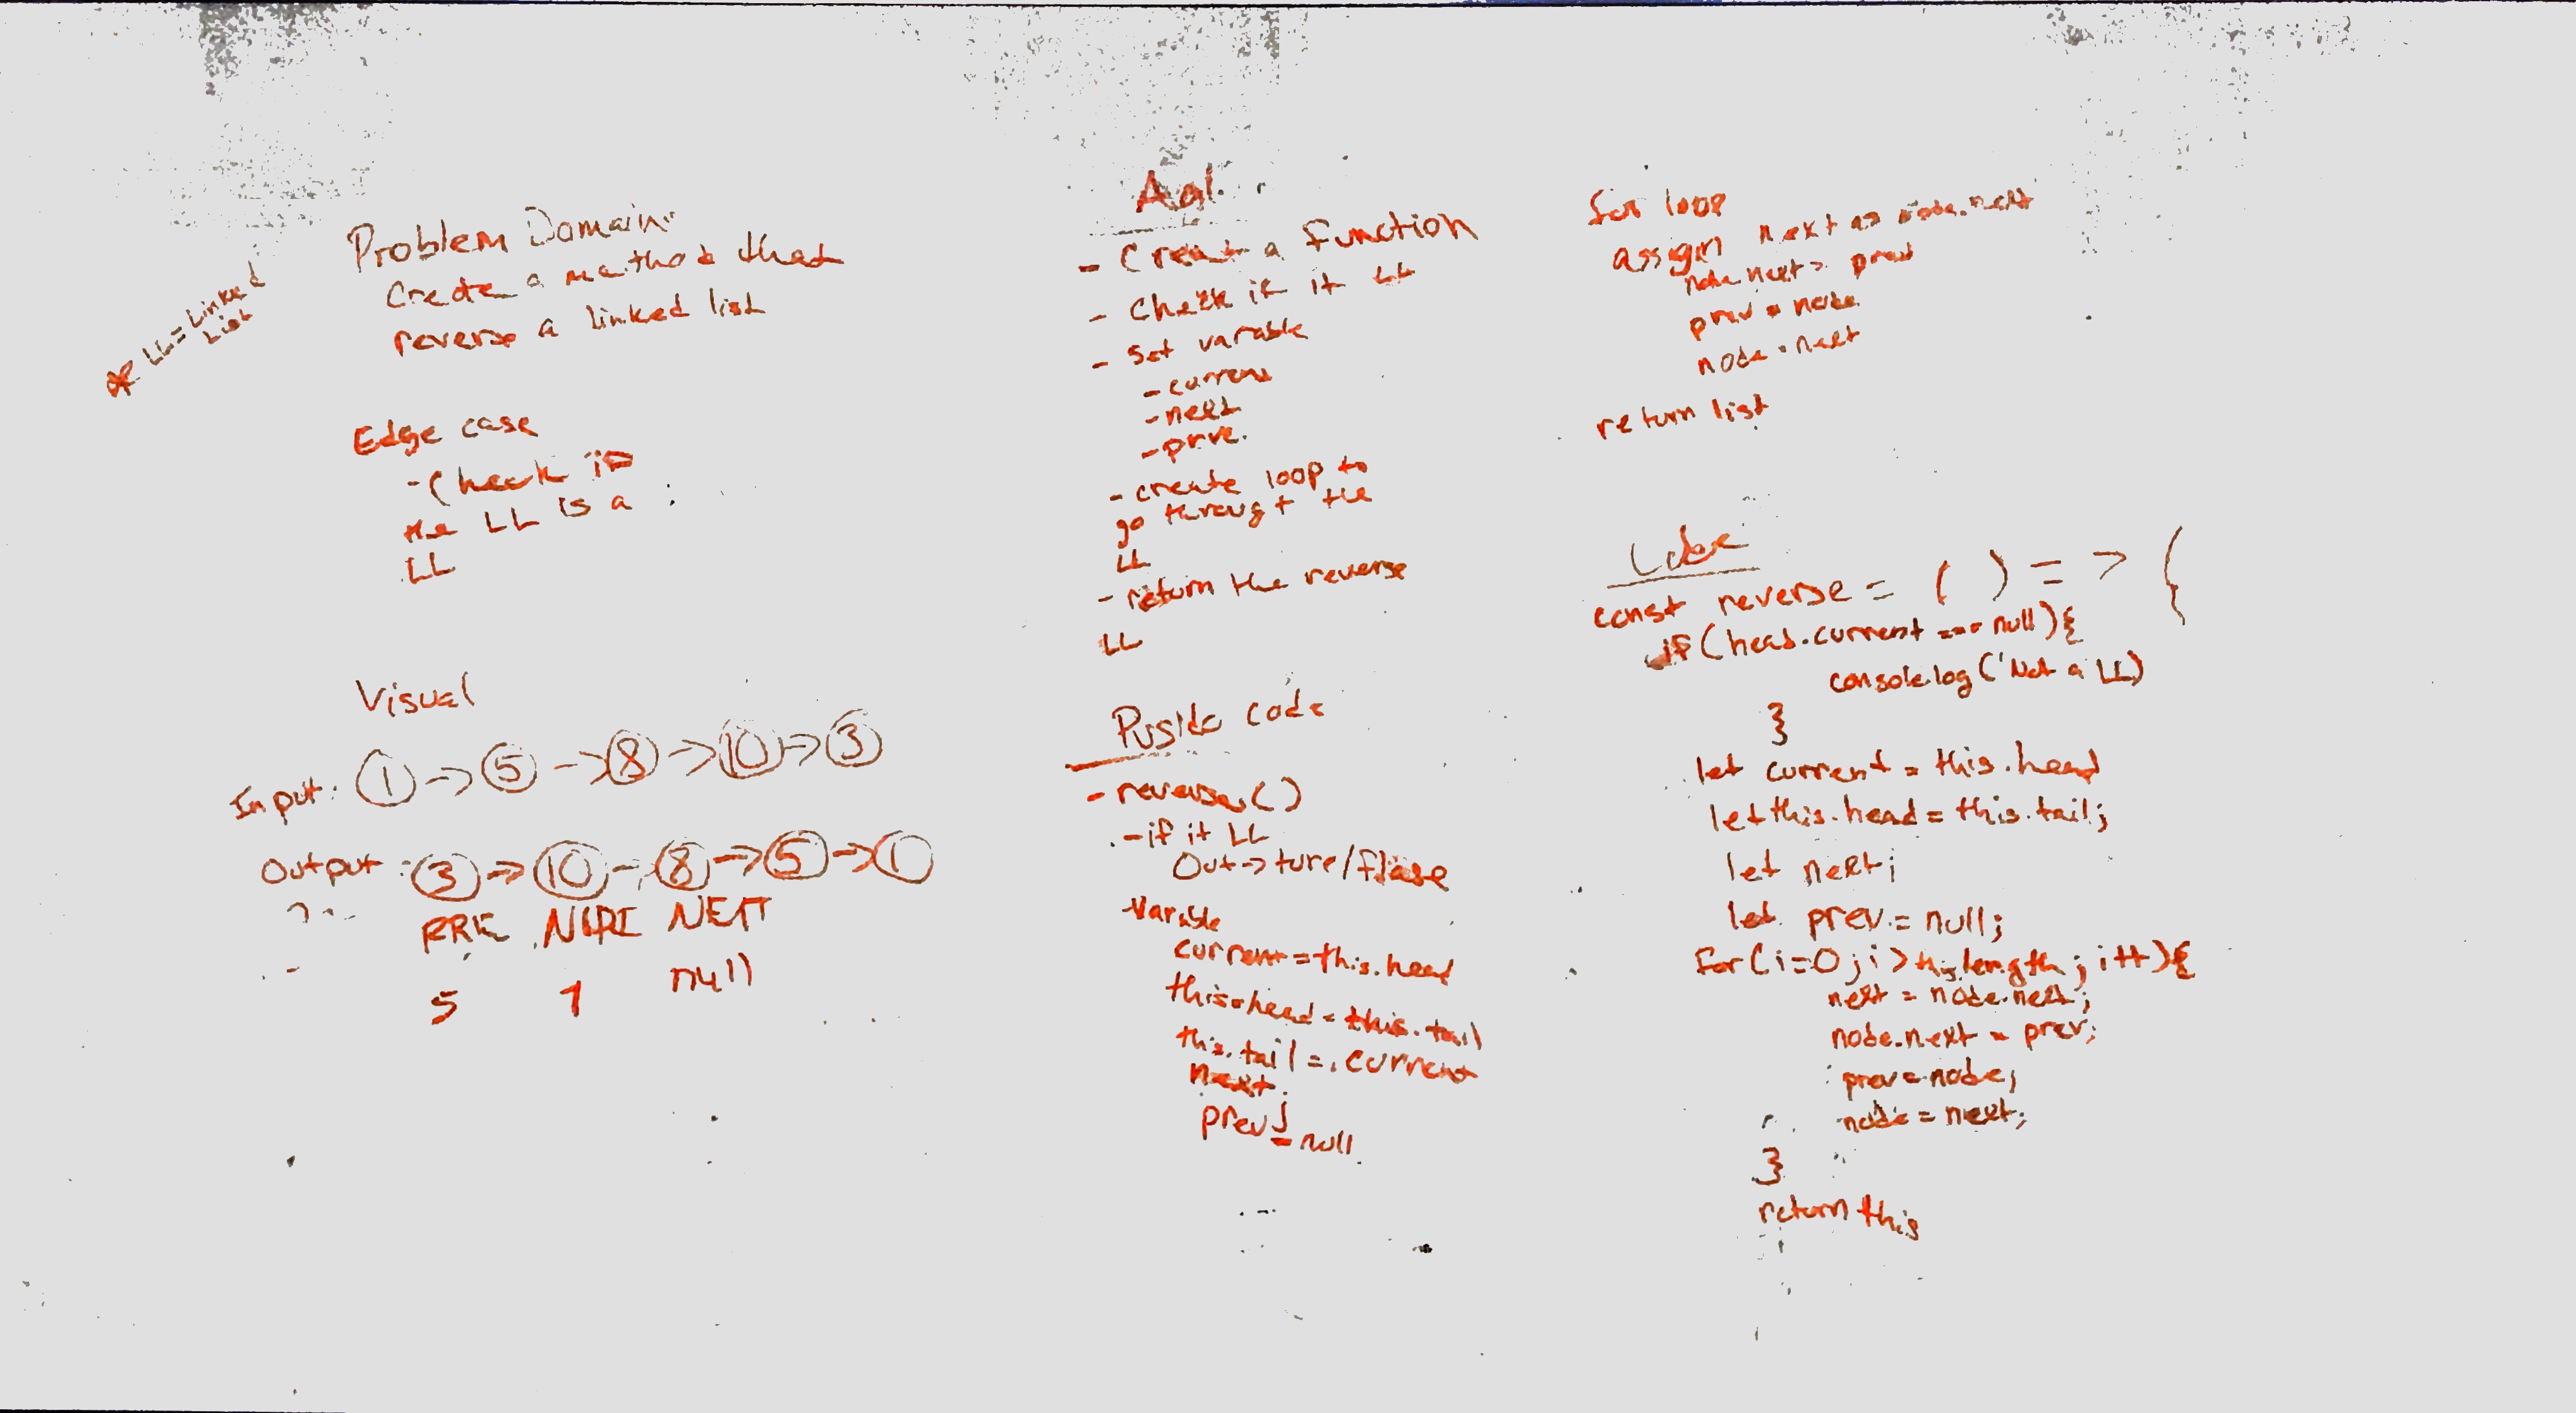 * LL = Linked
List
Problem Domain:
Create a method that
reverse a linked list
Edge case
- Check if
the LL is a
LL
Visual
Input: 1 -> 5 -> 8 -> 10 -> 3
Output: 3 -> 10 -> 8 -> 5 -> 1
PRE NEXT
5 1 null
- Creat a function
- Check if it LL
- Set variable
- current
- next
- prve.
- create loop to
go througt the
LL
- return the reverse
LL
Pusido code
- reverse()
- if it LL
Out -> ture/flase
- Variable
current = this.head
this.head = this.tail
this.tail = current
next;
prev = null
for loop
assign next as node.next
node.next = prev
prev = node
node = next
return list
Code
const reverse = ( ) = > {
if (head.current === null){
console.log('Not a LL)
}
let current = this.head
let this.head = this.tail;
let next;
let prev = null;
for(i=0; i > this.length; i++){
next = node.next;
node.next = prev;
prev = node;
node = next;
}
return this